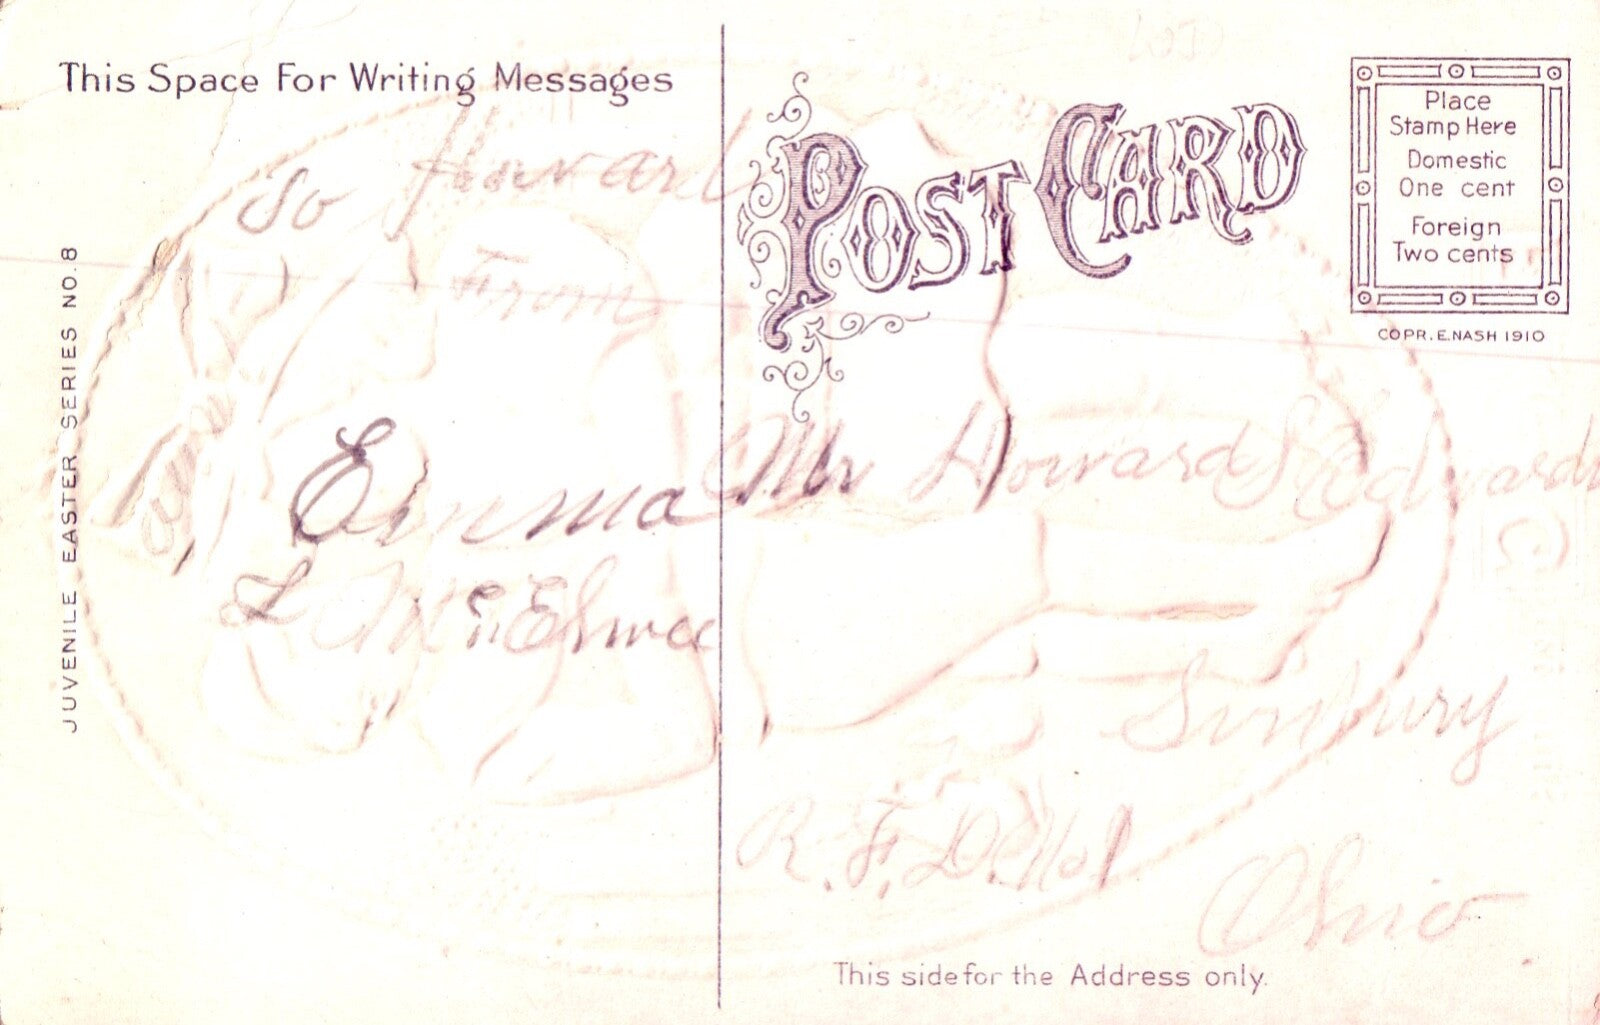 This Space For Writing Messages
To Howard
From
Emma
JUVENILE EASTER SERIES NO. 8
POST CARD
Place
Stamp Here
Domestic
One cent
Foreign
Two cents
COPR. E. NASH 1910
Mr Howard Edwards
Sunbury
R. F. D. No 1
Ohio
This side for the Address only.